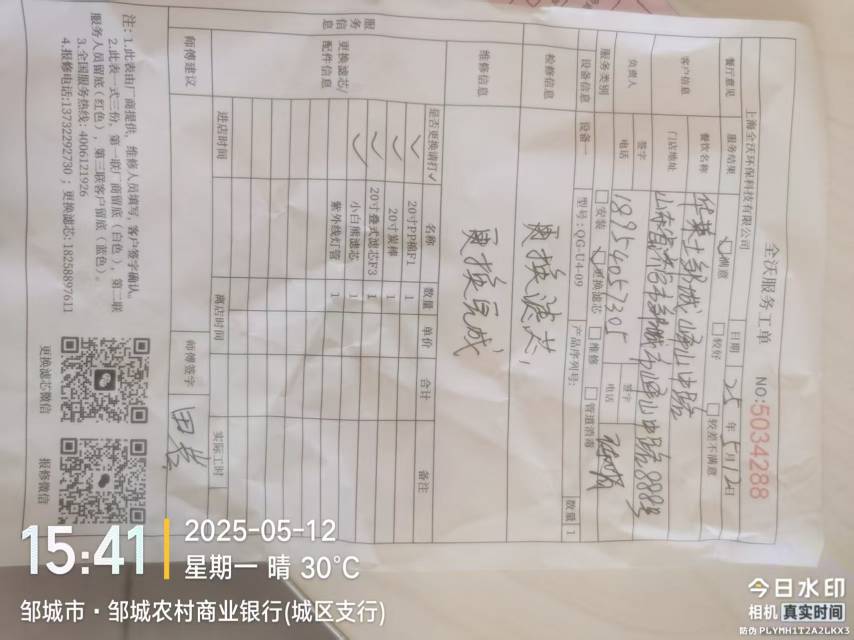 全沃服务工单 NO:5034288
上海全沃环保科技有限公司 日期 25 年 5月12日
餐厅意见 服务结果 满意 较好 较差不满意
客户信息 餐饮名称 华莱士邹城峄山中路
门店地址 山东省济宁市邹城市峄山中路888号
负责人 签字 签字
电话 18954057305 电话
服务类别 安装 更换滤芯 维修 管道消毒
设备信息 设备一 型号:QG-U4-09 产品序列号: 数量 1
检修信息 更换滤芯,
维修信息 更换完成
服务信息
更换滤芯/配件信息 是否更换请打✓ 名称 数量 单价 合计 备注
✓ 20寸PP棉F1 1
✓ 20寸炭棒 1
✓ 20寸叠式滤芯F3 1
✓ 小白熊滤芯 1
紫外线灯管 1
进店时间 离店时间 实际工时
师傅建议 师傅签字
注:1.此表由厂商提供,维修人员填写,客户签字确认。
2.此表一式三份,第一联厂商留底(白色),第二联
服务人员留底(红色),第三联客户留底(蓝色)。
3.全国服务热线:4006121926
4.报修电话:13732292730;更换滤芯:18258897611
更换滤芯微信 报修微信
15:41
2025-05-12
星期一 晴 30°C
邹城市·邹城农村商业银行(城区支行)
今日水印
相机 真实时间
防伪 PLYMH1T2A2LKX3